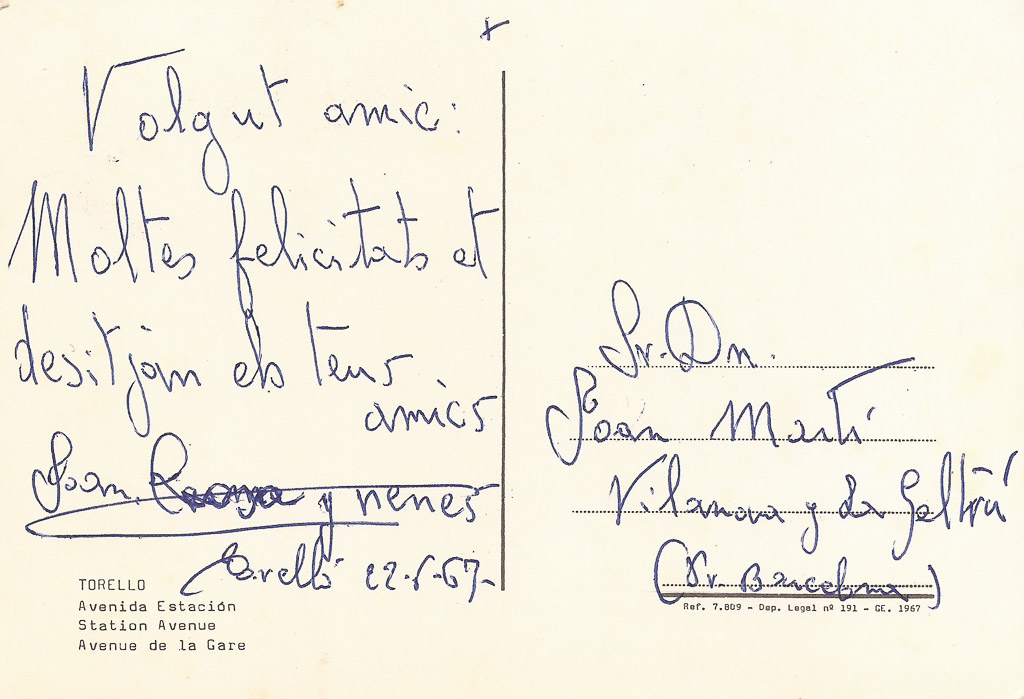 Volgut amic:
Moltes felicitats et
desitjan els teus
amics
Joan y nenes
Torelló 22-6-67-
TORELLO
Avenida Estación
Station Avenue
Avenue de la Gare
Sr. Dn.
Joan Martí
Vilanova y La Geltrú
(Pr. Barcelona)
Ref. 7.809 - Dep. Legal nº 191 - GE. 1967